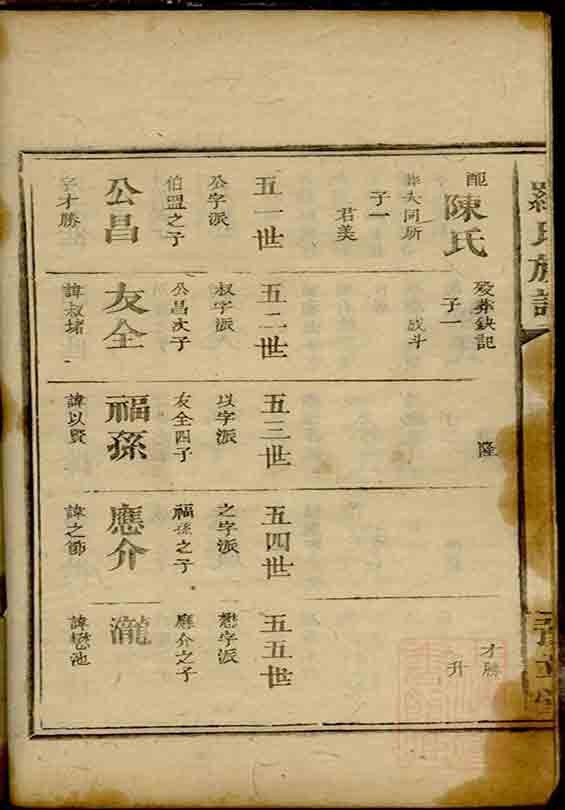 羅氏族譜
配
陳氏
葬大同所
子一
君美
歿葬缺記
子一
成斗
隆
才勝
升
五一世
公字派
伯盟之子
公昌
字才勝
五二世
叔字派
公昌次子
友全
諱叔堵
五三世
以字派
友全四子
福孫
諱以賢
五四世
之字派
福孫之子
應介
諱之節
五五世
懋字派
應介之子
瀧
諱懋池